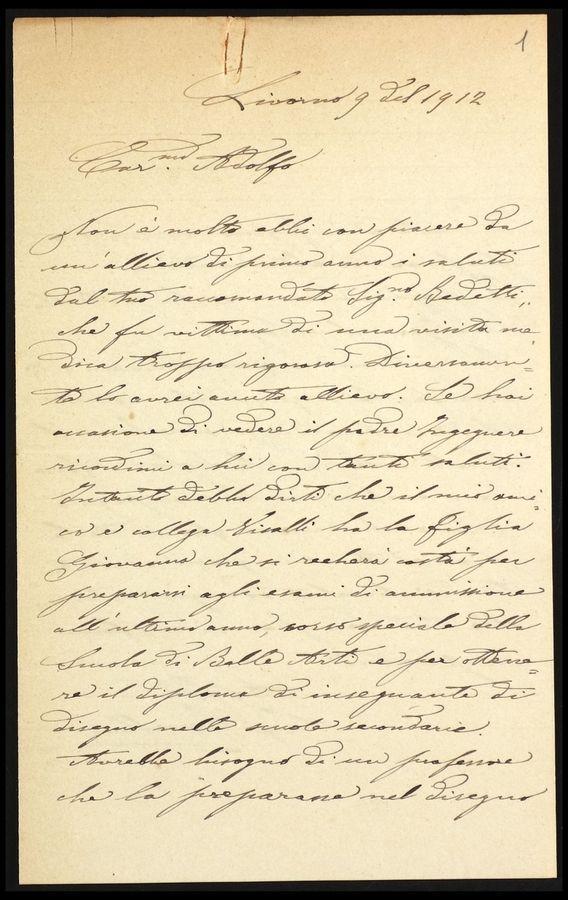 1
Livorno 9 del 1912
Car.mo Adolfo
Non è molto ebbi con piacere da
un'allievo di primo anno i saluti
dal tuo raccomandato Sig.no Bedetti,
che fu vittima di una visita me=
dica troppo rigorosa. Diversamen=
te lo avrei avuto allievo. Se hai
occasione di vedere il padre Ingegnere
ricordimi a lui con tanti saluti.
Intanto debbo dirti che il mio ami=
co e collega Visalli ha la figlia
Giovanna che si recherà costà per
prepararsi agli esami di ammissione
all'ultimo anno, corso speciale della
Scuola di Belle Arti e per ottene=
re il diploma di insegnante di
disegno nelle scuole secondarie.
Avrebbe bisogno di un professore
che la preparasse nel disegno